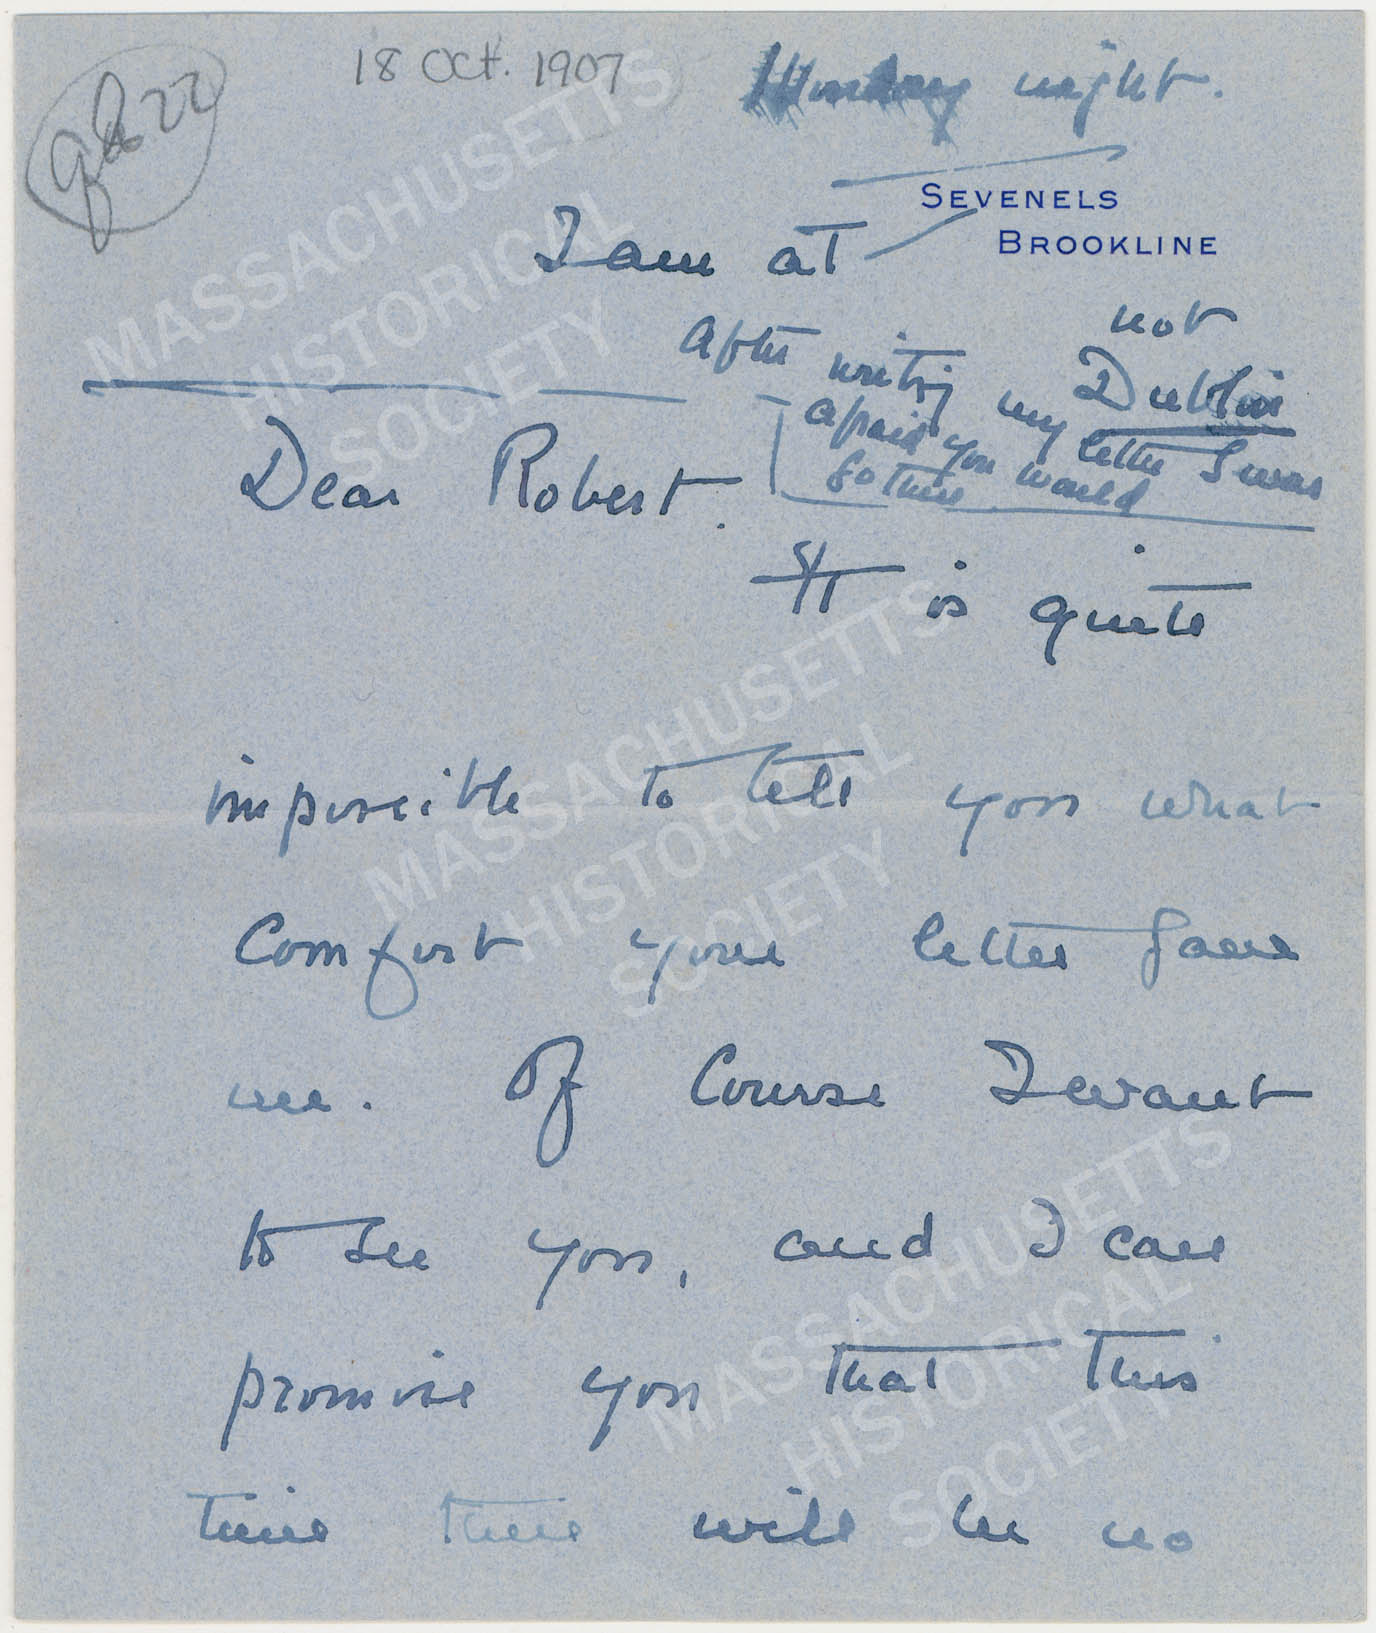 18 Oct. 1907
night.
SEVENELS
BROOKLINE
I am at
not
Dublin
After writing my letter I was
afraid you would
go there
Dear Robert.
It is quite
impossible to tell you what
Comfort your letter gave
me. Of Course I want
to see you, and I can
promise you that this
time there will be no
MASSACHUSETTS
HISTORICAL
SOCIETY
MASSACHUSETTS
HISTORICAL
SOCIETY
MASSACHUSETTS
HISTORICAL
SOCIETY